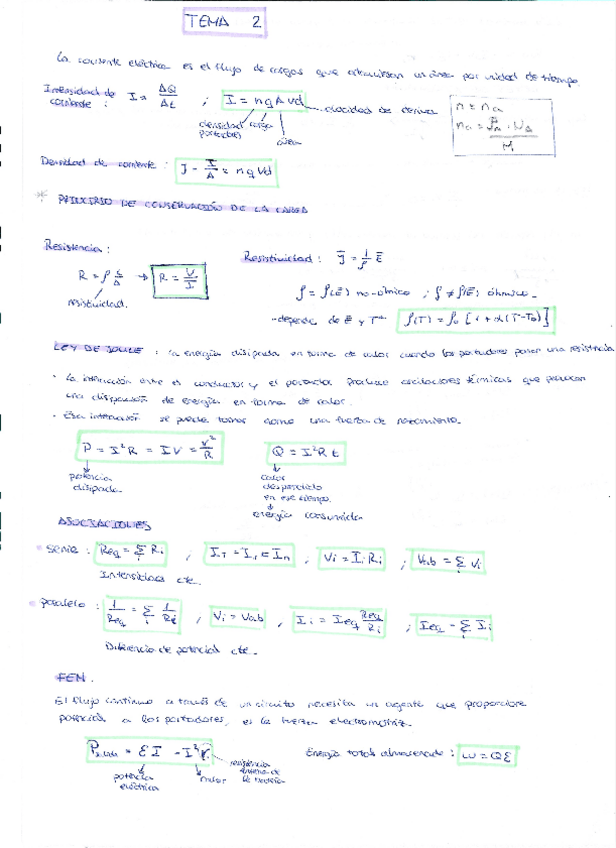 TEMA 2
La corriente eléctrica es el flujo de cargas que atraviesan un área por unidad de tiempo.
Intensidad de corriente : I = ΔQ/Δt ; I = nqAvd → velocidad de deriva
densidad portadores carga área
n = na
Densidad de corriente : J = I/A = nqvd
* PRINCIPIO DE CONSERVACIÓN DE LA CARGA
Resistencia :
Resistividad : J = 1/ρ E
R = ρ L/A → R = V/I
resistividad.
ρ = ρ(E) no-óhmico ; ρ ≠ ρ(E) óhmico.
- depende de E y Tª ρ(T) = ρ0 [1 + α(T-T0)]
LEY DE JOULE : La energía disipada en forma de calor cuando los portadores ponen una resistencia
· La interacción entre el conductor y el portador produce oscilaciones térmicas que provocan
una disipación de energía en forma de calor.
· Esa interacción se puede tomar como una fuerza de rozamiento.
P = I²R = IV = V²/R
Q = I²Rt
potencia disipada.
calor desprendido en ese tiempo.
energía consumida
ASOCIACIONES
· Serie : Req = Σ Ri ; IT = I1 = In ; Vi = Ii Ri ; Vab = Σ Vi
Intensidades cte.
· paralelo : 1/Req = Σ 1/Ri , Vi = Vab , Ii = Ieq Req/Ri ; Ieq = Σ Ii
Diferencia de potencial cte.
FEM.
El flujo continuo a través de un circuito necesita un agente que proporcione
potencial a los portadores, es la fuerza electromotriz.
= εI - I²r
resistencia interna de la batería
Energía total almacenada : W = Qε
potencia eléctrica